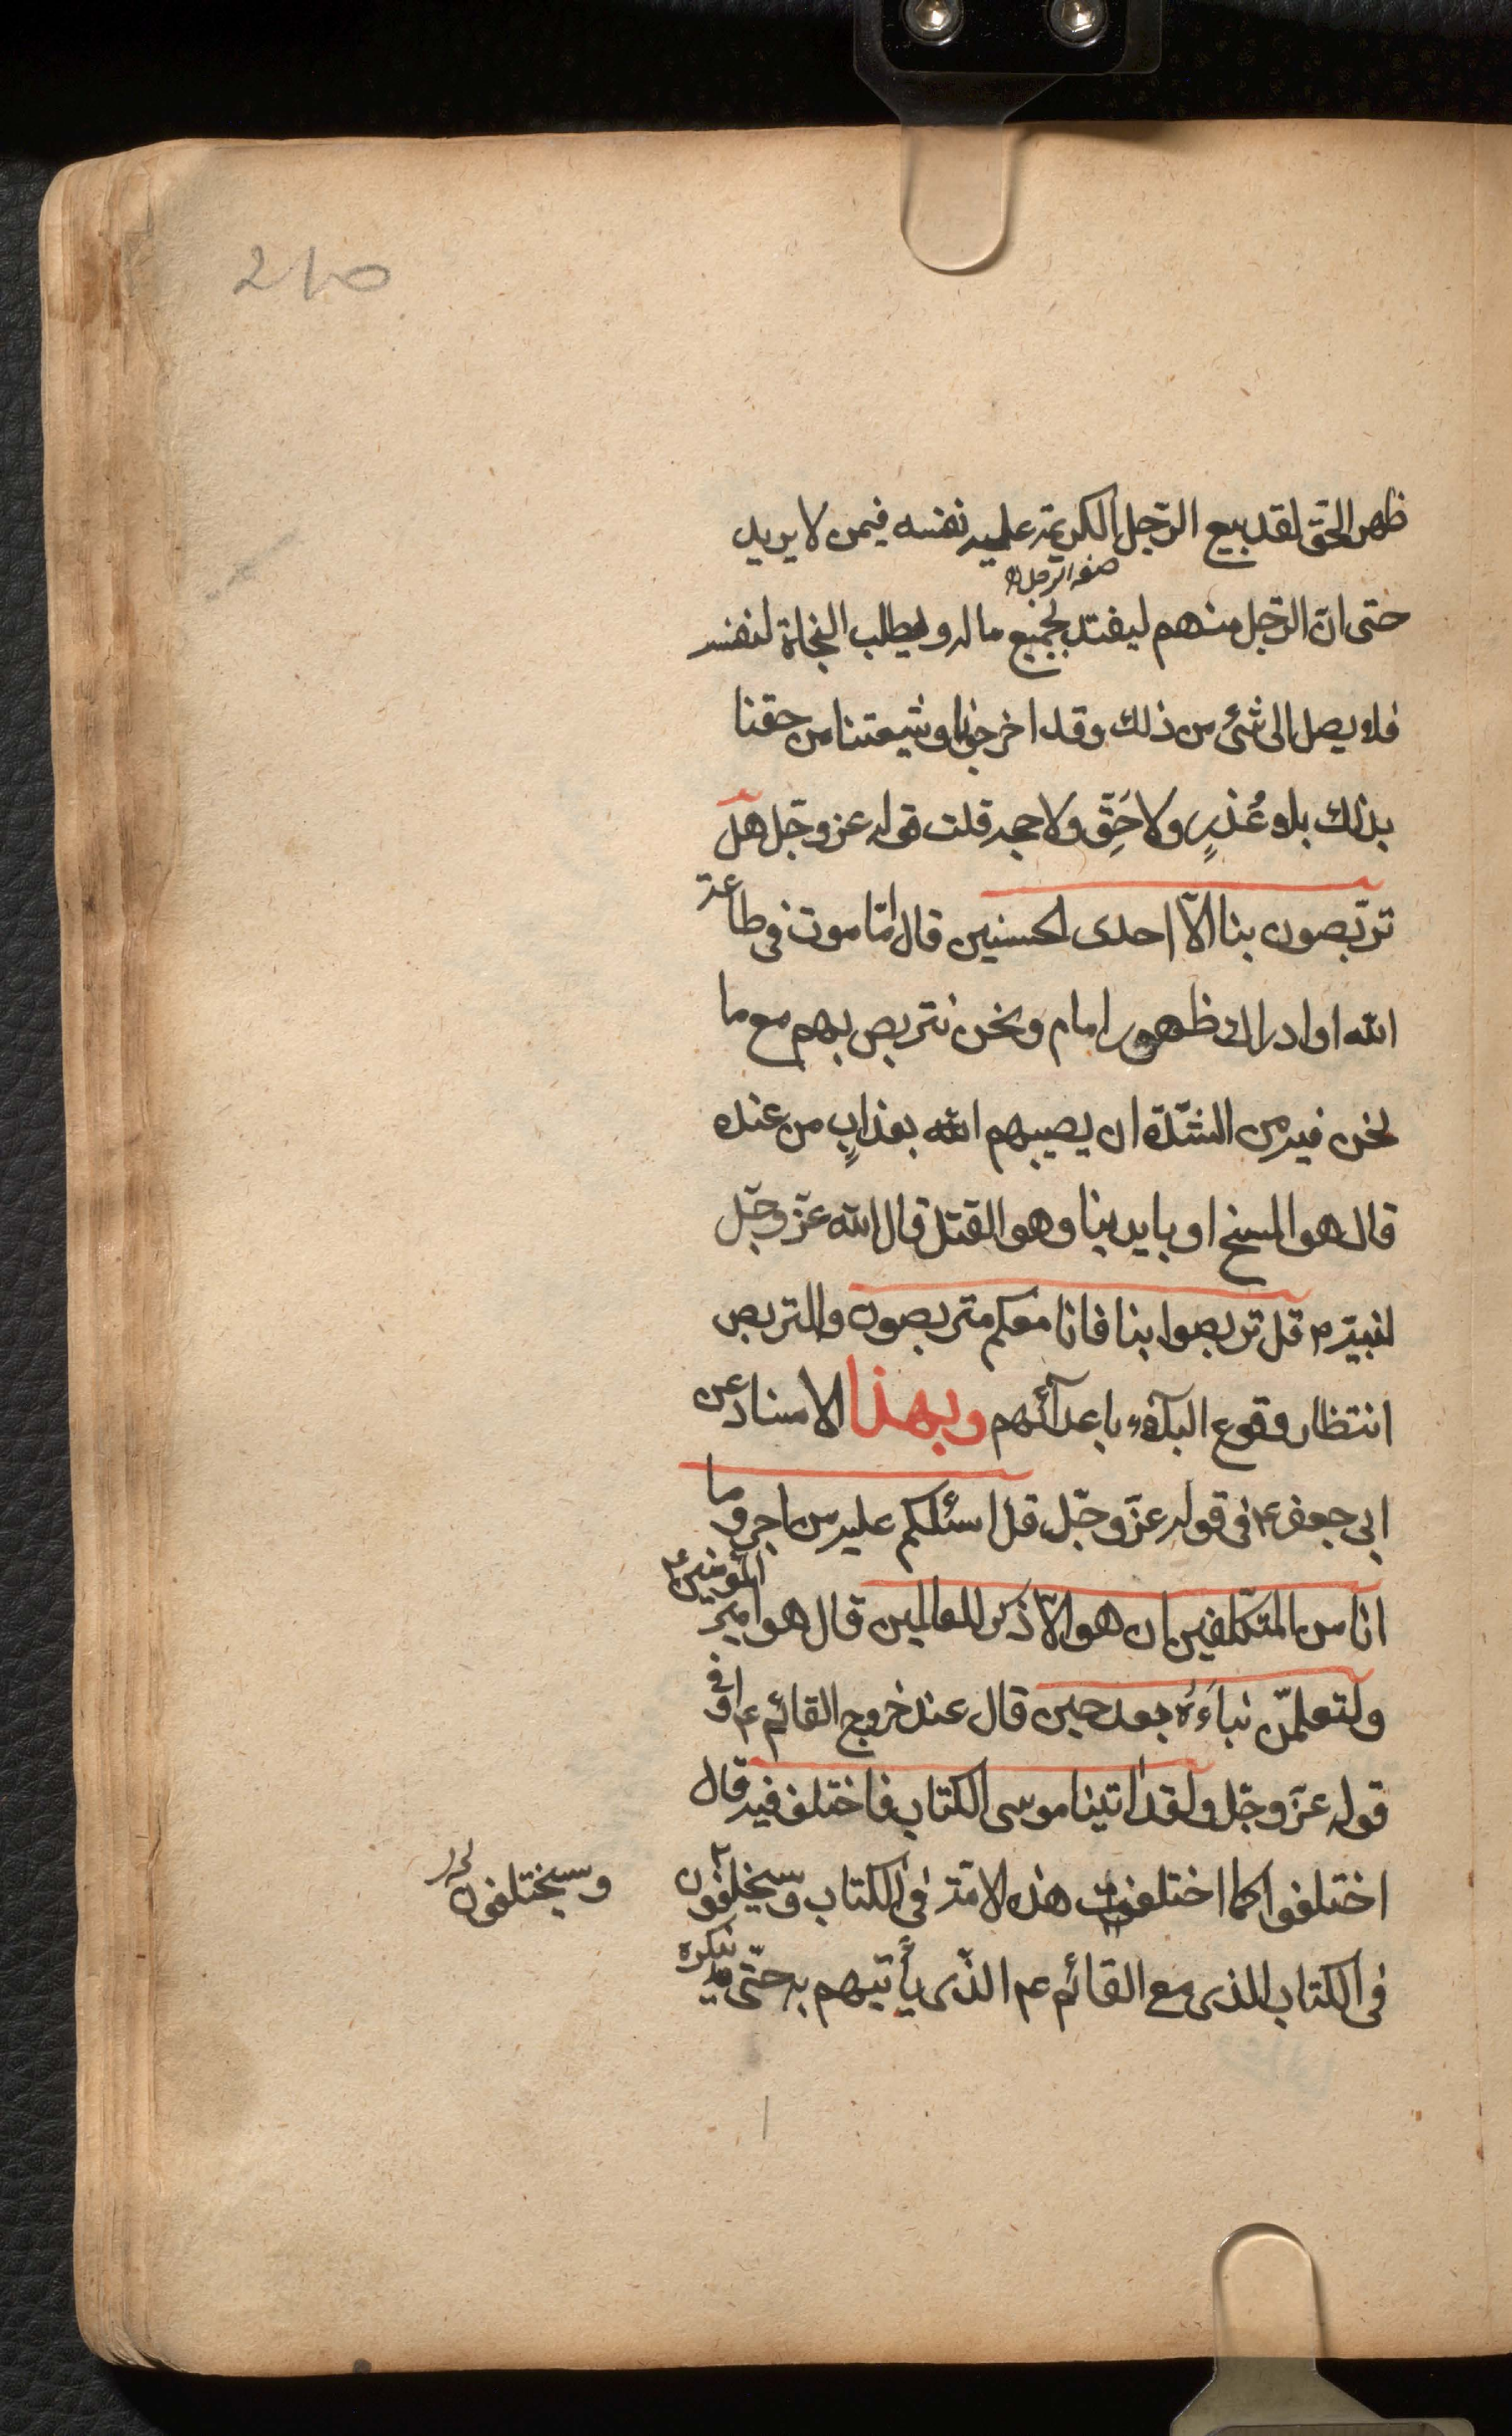 210
ظهر الحق لقد بيع الرّجل الكريمة عليه نفسه فيمن لا يريد
صفة الرجل
حتى انّ الرّجل منهم ليفتد بجميع ماله ويطلب النجاة لنفسه
فلا يصل الى شئ من ذلك وقد اخرجونا وشيعتنا من حقنا
بذلك بلا عُذرٍ ولا حَقّ ولا حجه قلت قوله عز وجّل هل
تربّصون بنا الاّ احدى الحسنيين قال امّا موت فى طاعة
الله او ادراك ظهور امام ونحن نتربص بهم مع ما
نحن فيه من الشدّة ان يصيبهم الله بعذابٍ من عنده
قال هو المسخ او بايدينا وهو القتل قال الله عزّ وجّل
لنبيّه ص قل تربصوا بنا فانا معكم متربصون والتربص
انتظار وقوع البلاۤء باعدآئهم وبهذا الاسناد عن
ابى جعفر ع فى قوله عزّ وجّل قل اسئلكم عليه من اجر وما
انا من المتكلّفين ان هو الاّ ذكر للعالمين قال هو امير المؤمنين ع
ولتعلمّن نباَءَهُ بعد حين قال عند خروج القائم ع وفى
قوله عزّ وجّل ولقد اتينا موسى الكتاب فاختلف فيه قال
اختلفوا كما اختلفت هذه الامّة فى الكتاب وسيخلفون
وسيختلفون
فى الكتاب الذى مع القائم عم الذّى يأتيهم به حتّى ينكره